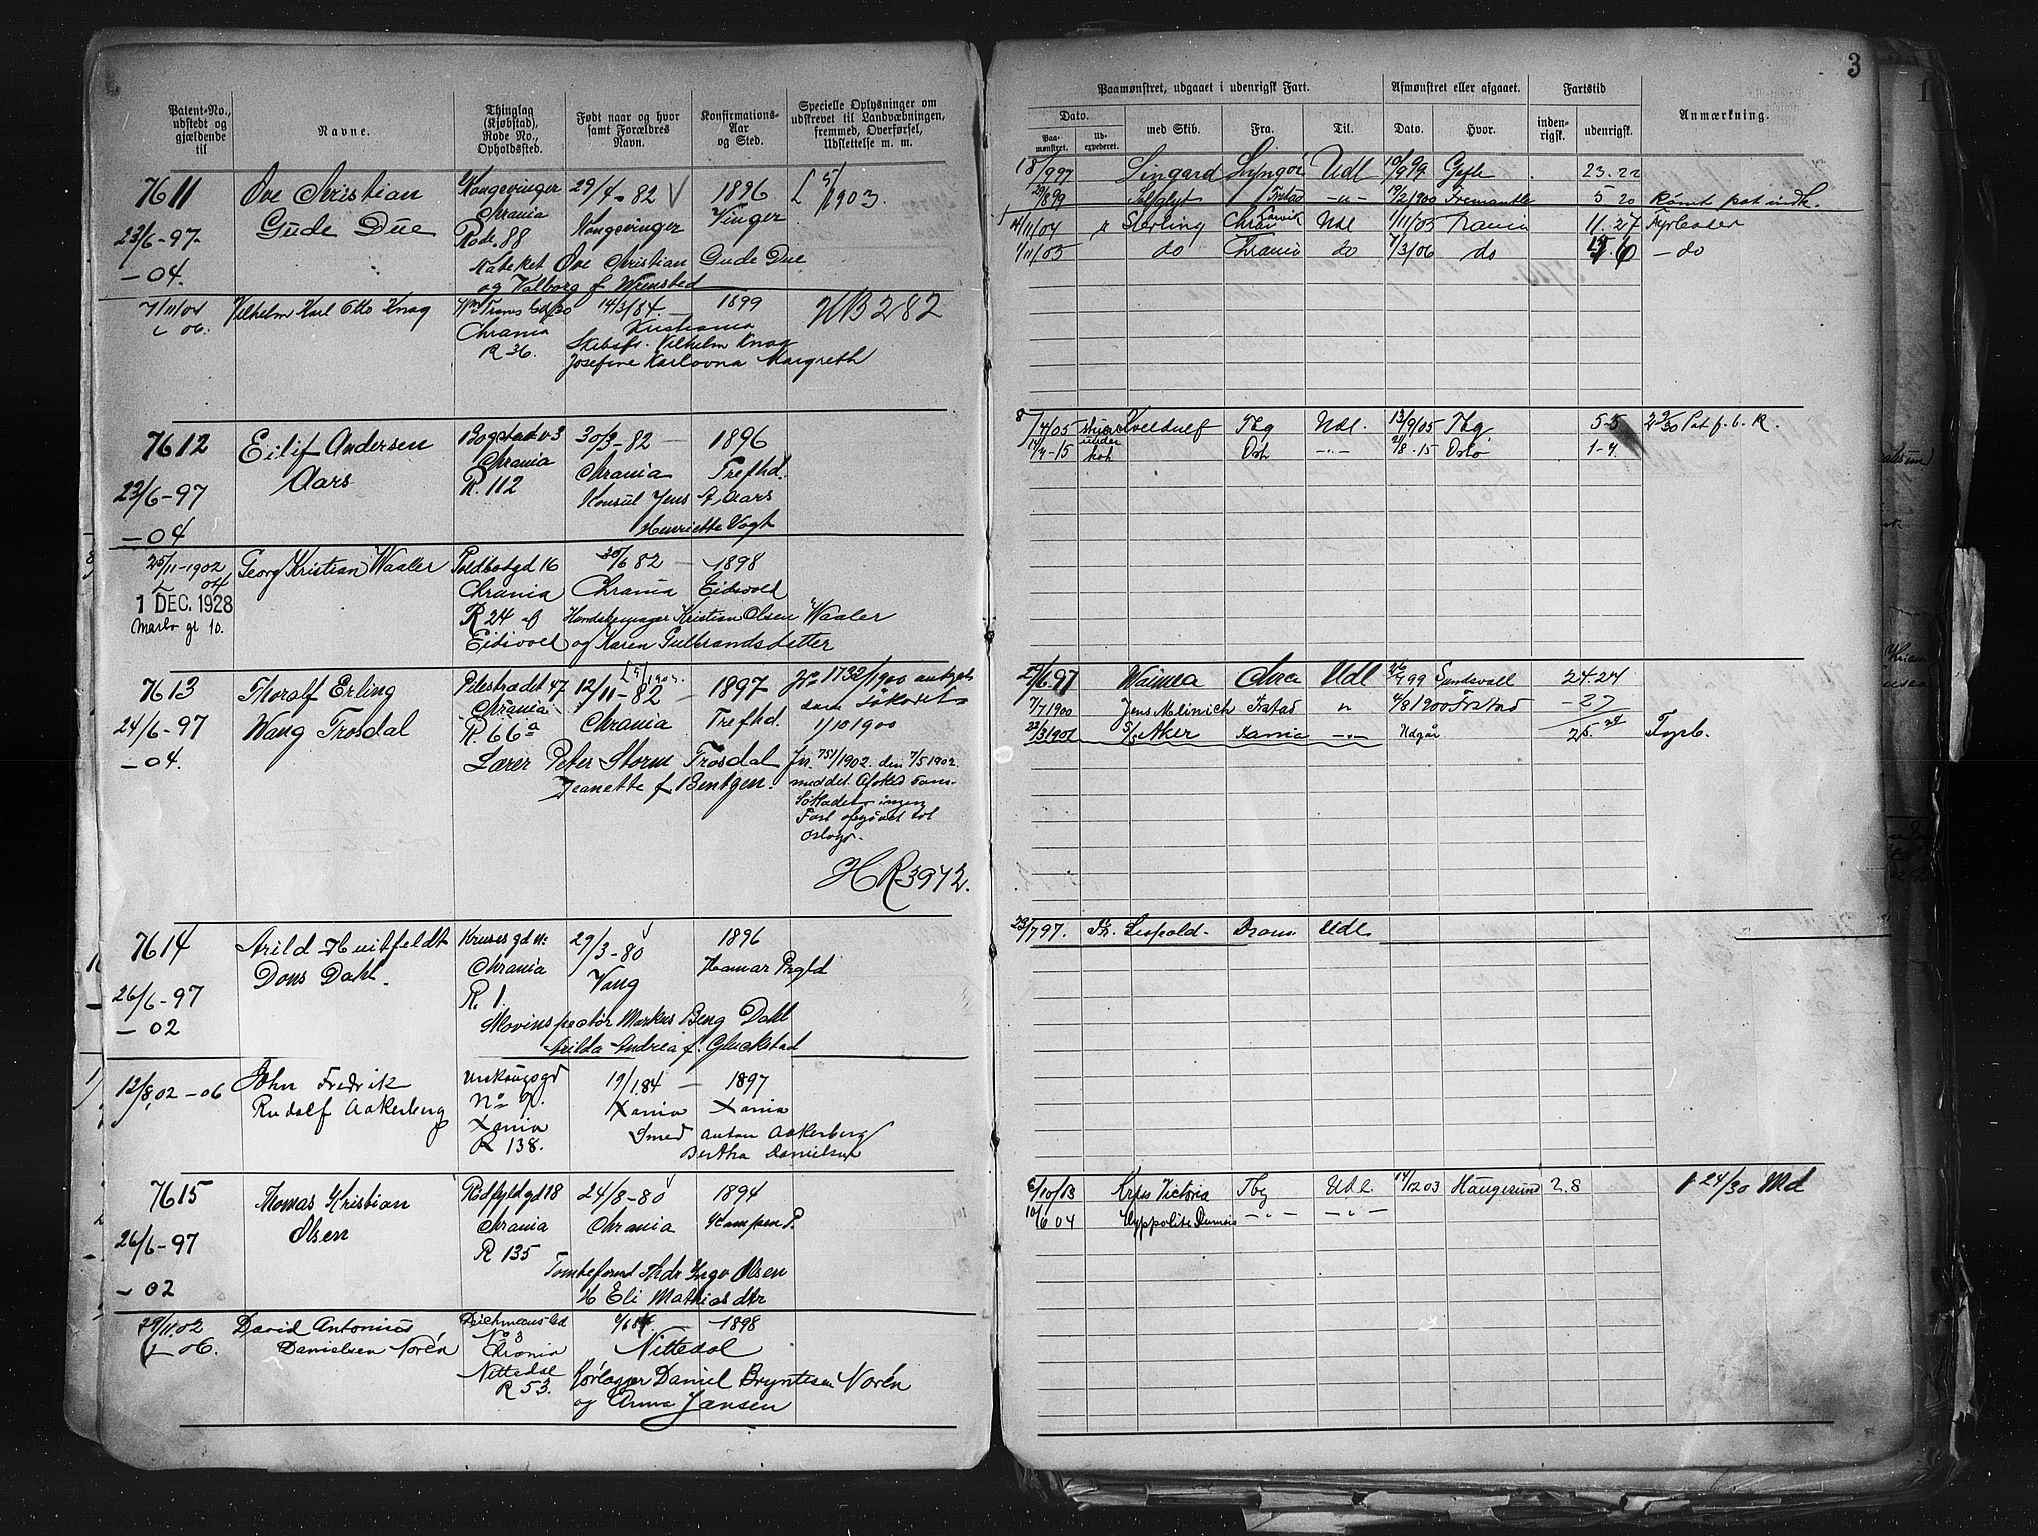 3
Patent-No., udstedt og gjældende til
Navne.
Thinglag (Kjøbstad), Rode No., Opholdssted.
Født naar og hvor samt Forældres Navn.
Konfirmations-Aar og Sted.
Specielle Oplysninger om udskrevet til Landværningen, fremmed, Overførsel, Udslettelse m. m.
Paamønstret, udgaaet i udenrigsk Fart.
Afmønstret eller afgaaet.
Fartstid
Anmærkning.
Dato.
Paa-mønstret.
Ud-expederet.
med Skib.
Fra.
Til.
Dato.
Hvor.
inden-rigsk.
udenrigsk.
7611 Ove Christian Kongsvinger 29/4-82 1896 L 5/1903.
Gude Due Chrania Kongsvinger Vinger
23/6-97- Rode. 88
-04. Ove Christian Gude Due
og Valborg f.
18/9 97 Lingard Lyngør Udl 10/9 99 Gefle 23.22
29/8 99 Fstad -"- 19/2 1900 Fremantle 5 20 Rømt
4/11/04 Sterling Chran Larvik Udl 1/11/05 Xania 11.27 Fyrbøder
1/11/05 do Chrania do 7/3/06 do 6 - do
7/11/04 Vilhelm Karl Otto Knag 14/3/84. - 1899 HB 282
06. Chrania Kristiania
R 36. Skibsf. Vilhelm Knag
Josefine Karlovna Margreth
7612 Eilif Andersen Bogstadv 3 30/3-82 - 1896
Aars Chrania Chrania Trefhd.
23/6-97 R. 112 Konsul Jens A Aars
-04 Henriette Vogt
8/4 05 Kveldulf Tbg Udl. 13/9 05 Tbg. 5-5 Pat f. b. R.
14/4-15 Osl -"- 21/8-15 Oslo 1-7.
25/11-1902 Georg Kristian Waaler 16 30/6 82 - 1898
04 Chrania Chrania Eidsvold
1 DEC. 1928 R 24 af Handskemager Kristian Olsen Waaler
gl 10. Eidsvoll og Karen Gulbrandsdatter
7613 Thoralf Erling Pilestrædet 47 12/11-82 - 1897 No 1732/1900
Wang Trosdal Chrania Chrania Trefhd. 1/10 1900
24/6-97 R. 66a Lærer Peter Storm Trosdal Jn. 751/1902. den 7/5 1902.
-04. Jeanette f. Bentzen.
HR3972.
29/6 97 Waimea Chra Udl 99 Sundsvall 24.24
7/7 1900 Jens Melinich Fstad " 4/8 1900 Fstad - 27
22/3 1901 S/S Aker Xania -"- Udgår 25. Fyrb.
7614 Arild Huitfeldt Krusesgd 29/3-80 1896
Dons Dahl. Chrania Vang Hamar
26/6-97 R. 1.
-02 Skovinspektør Markus Bing Dahl
Arilda Andrea f. Gluckstad
23/7 97. Pr. Leopold. Dram. Udl.
12/8,02 -06 John Fredrik 19/1.84 - 1897
Rudolf Aakerberg No 9. Xania Xania
Xania Smed Anton Aakerberg
R 138. Bertha Danielsen
7615 Thomas Kristian Rødfyldgd 18 24/8-80 1894
Olsen Chrania Chrania Kampen P.
26/6-97 R 135
-02 Olsen
H Eli Mathiasdtr
6/10/03 Victoria Tbg Udl. 14/12 03 Haugesund 2.8 24/30 Md
10/6 04 Hyppolite Dumois -"- -"-
29/11.02 David Antonius 84 - 1898
06. Danielsen Norén No 3 Nittedal
Chrania
Nittedal Daniel Bryntesen Norén
R 53. og Anna Jansen